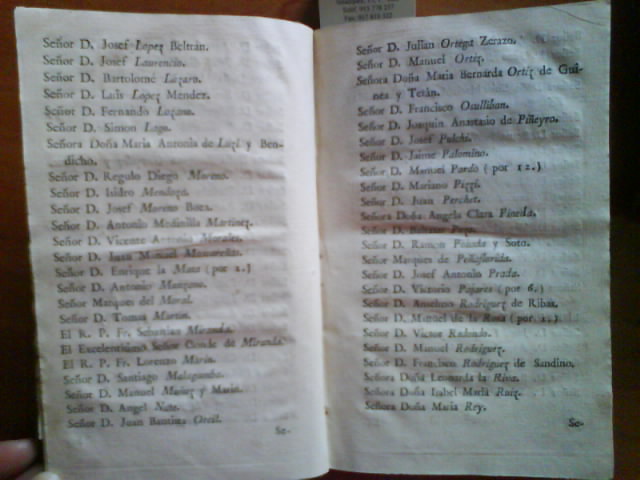 Señor D. Josef Lopez Beltrán.
Señor D. Josef Laurencin.
Señor D. Bartolomé Lázaro.
Señor D. Luis Lopez Mendez.
Señor D. Fernando Lozano.
Señor D. Simon Lago.
Señora Doña Maria Antonia de y Ben-
dicho.
Señor D. Regulo Diego Moreno.
Señor D. Isidro Mendoza.
Señor D. Josef Moreno Baca.
Señor D. Antonio Modinilla Martinez.
Señor D. Vicente Antonio Morales.
Señor D. Juan Manuel
Señor D. Enrique la Mata (por 2.)
Señor D. Antonio Manzano.
Señor Marques del Moral.
Señor D. Tomas Martin.
El R. P. Fr. Sebastian Miranda.
El Excelentísimo Señor Conde de Miranda.
El R. P. Fr. Lorenzo Marin.
Señor D. Santiago Malagamba.
Señor D. Manuel y Marin.
Señor D. Angel
Señor D. Juan Bautista Orcil.
Se-
Señor D. Julian Ortega Zerazo.
Señor D. Manuel Ortiz.
Señora Doña Maria Bernarda Ortiz de Gui-
nea y Terán.
Señor D. Francisco Oculliban.
Señor D. Joaquin Anastasio de Piñeyro.
Señor D. Josef Pulchi.
Señor D. Jaime Palomino.
Señor D. Manuel Pardo (por 12.)
Señor D. Mariano Pizzi.
Señor D. Juan Perchet.
Señora Doña Angela Clara Pineda.
Señor D. Baltasar
Señor D. Ramon Posada y Soto.
Señor Marques de Peñaflorida.
Señor D. Josef Antonio Prada.
Señor D. Victorio Pajares (por 6.)
Señor D. Anselmo Rodriguez de Ribas.
Señor D. Manuel de la Rosa (por 2.)
Señor D. Victor Redondo.
Señor D. Manuel Rodriguez.
Señor D. Francisco Rodriguez de Sandino.
Señora Doña Leonarda la Riva.
Señora Doña Isabel Maria Ruiz.
Señora Doña Maria Rey.
Se-